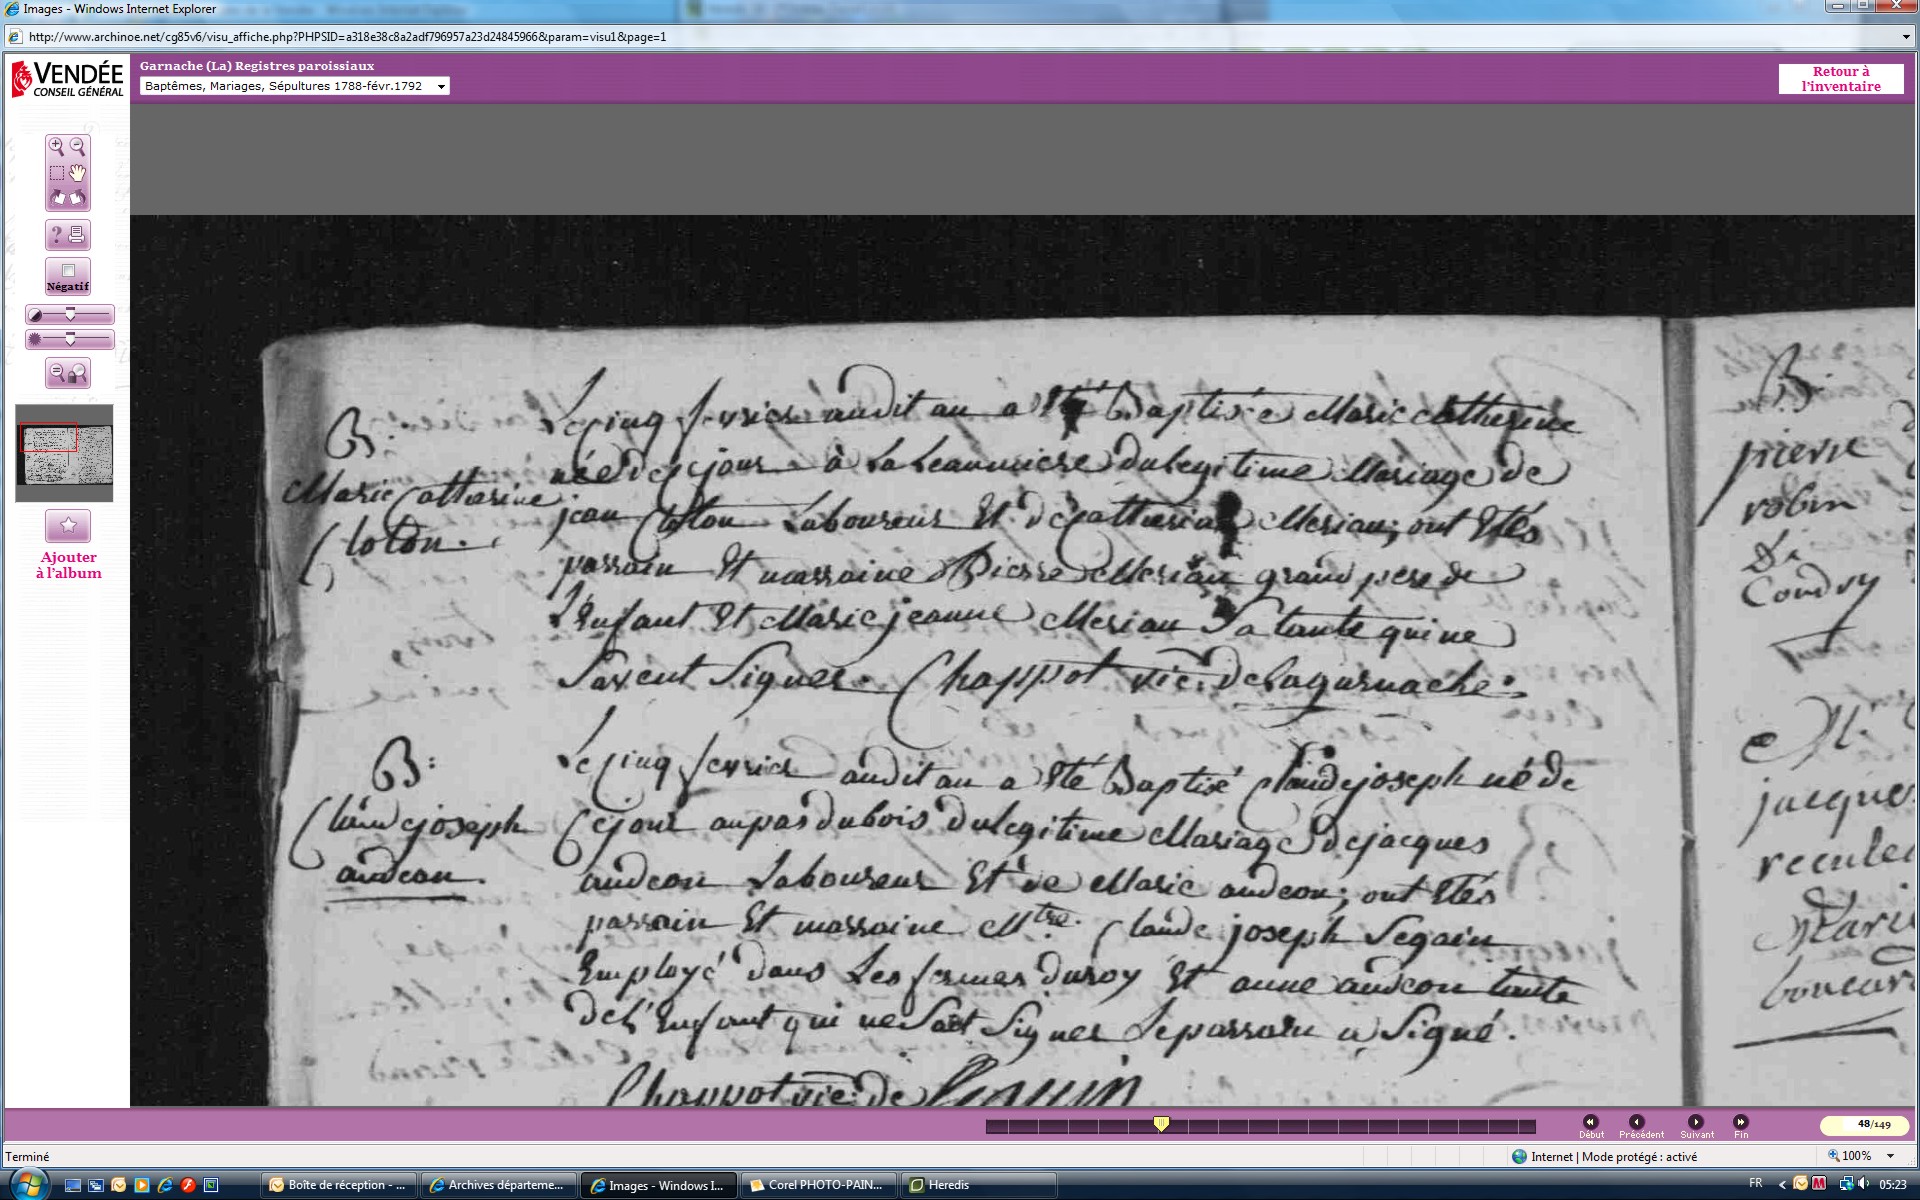 Images - Windows Internet Explorer
http://www.archinoe.net/cg85v6/visu_affiche.php?PHPSID=a318e38c8a2adf796957a23d24845966&param=visu1&page=1
VENDÉE
CONSEIL GÉNÉRAL
Garnache (La) Registres paroissiaux
Baptêmes, Mariages, Sépultures 1788-févr.1792
Retour à
l'inventaire
Négatif
Ajouter
à l'album
B:
Marie Catherine
Cloton.
Le cinq fevrier audit an a Eté Baptisée Marie catherine
née de ce jour à La Leaumiere du legitime Mariage de
jean Cloton Laboureur Et de Catherine Merian; ont Etés
parrain Et marraine Pierre Merian grand pere de
L'Enfant Et Marie jeanne Merian Sa tante qui ne
Savent Signer. Chappot vic. de la garnache.
B:
Claude joseph
audeon.
Le cinq fevrier audit an a Eté Baptisé Claude joseph né de
Ce jour au pas du bois du legitime Mariage de jacques
audeon Laboureur Et de Marie audeon; ont Etés
parrain Et marraine Mtre. Claude joseph Segain
Employé dans Les fermes du roy Et anne audeon tante
de L'Enfant qui ne Sait Signer Le parrain a Signé.
Chappot vic: de
B.
pierre
robin
Condry
M.
jacques
Marie
48/149
Début
Précédent
Suivant
Fin
Terminé
Internet | Mode protégé : activé
100%
Boîte de réception - ...
Archives départeme...
Images - Windows I...
Corel PHOTO-PAIN...
Heredis
FR
05:23